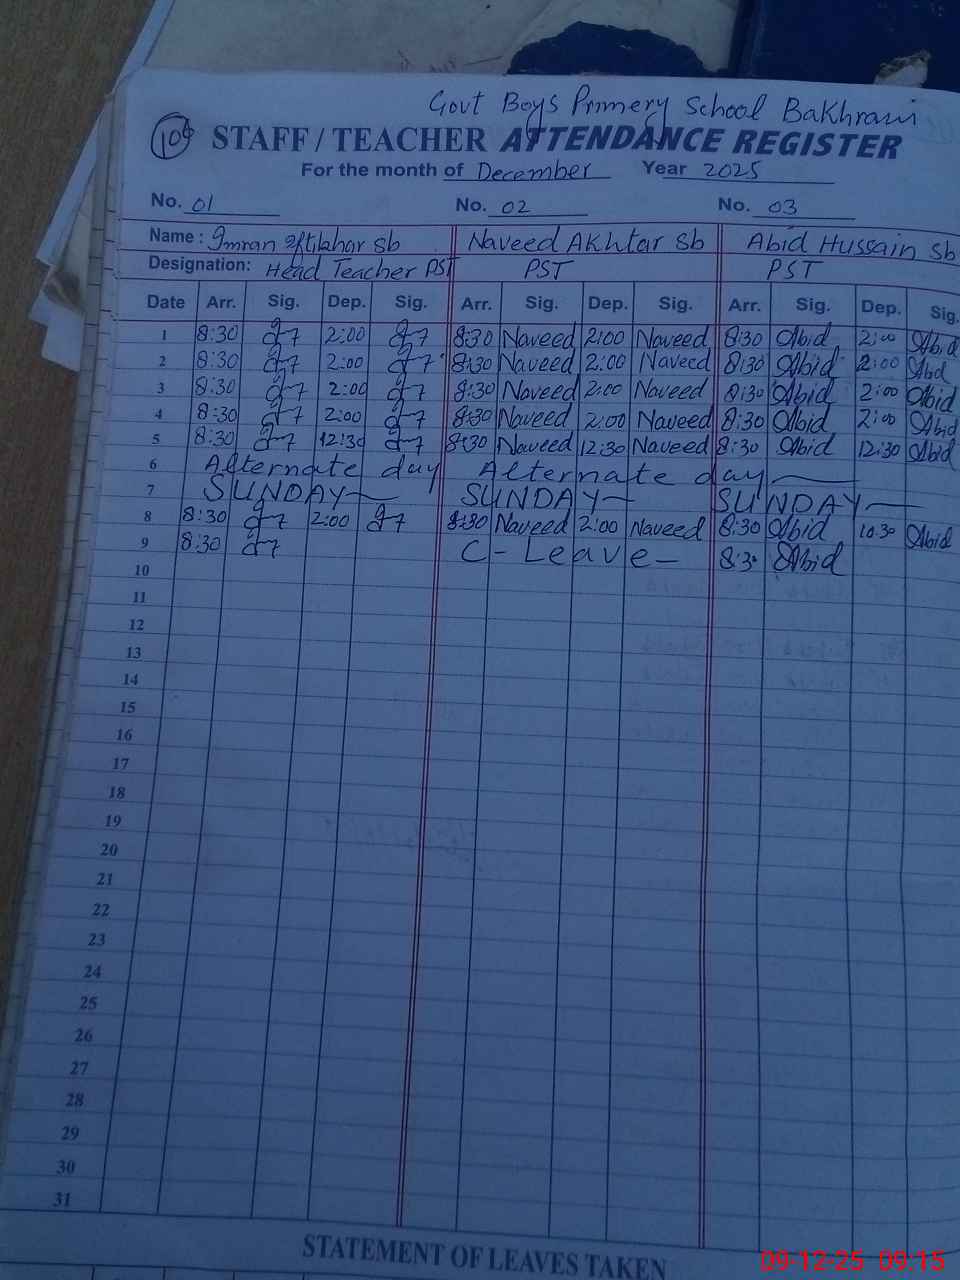 Govt Boys Primery School Bakhrani
106 STAFF / TEACHER ATTENDANCE REGISTER
For the month of December Year 2025
No. 01 No. 02 No. 03
Name : Imran Iftikhar Sb Naveed Akhtar Sb Abid Hussain Sb
Designation: Head Teacher PST PST PST
Date Arr. Sig. Dep. Sig. Arr. Sig. Dep. Sig. Arr. Sig. Dep. Sig.
1 8:30 2:00 8:30 Naveed 2:00 Naveed 8:30 Abid 2:00 Abid
2 8:30 2:00 8:30 Naveed 2:00 Naveed 8:30 Abid 2:00 Abid
3 8:30 2:00 8:30 Naveed 2:00 Naveed 8:30 Abid 2:00 Abid
4 8:30 2:00 8:30 Naveed 2:00 Naveed 8:30 Abid 2:00 Abid
5 8:30 12:30 8:30 Naveed 12:30 Naveed 8:30 Abid 12:30 Abid
6 Alternate day Alternate day
7 SUNDAY SUNDAY SUNDAY
8 8:30 2:00 8:30 Naveed 2:00 Naveed 8:30 Abid 10:30 Abid
9 8:30 C-Leave 8:30 Abid
10
11
12
13
14
15
16
17
18
19
20
21
22
23
24
25
26
27
28
29
30
31
STATEMENT OF LEAVES TAKEN
09-12-25 09:15